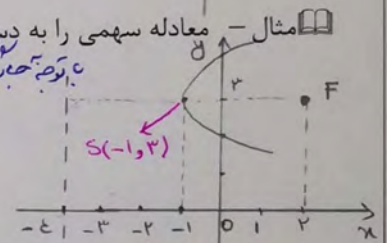 مثال – معادله سهمی را به دس
با توجه
y
۳
F
S(-1,3)
-۴ -۳ -۲ -۱ ۰ ۱ ۲ x